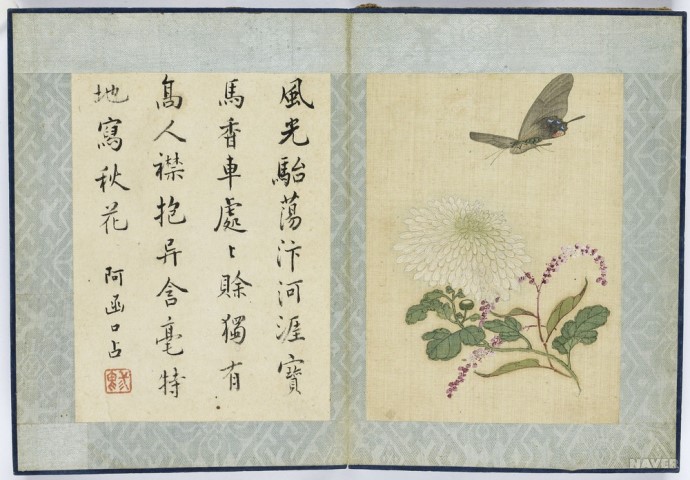 風光駘蕩汴河涯寶
馬香車處〻賖獨有
高人襟抱异含毫特
地寫秋花
阿函口占
NAVER